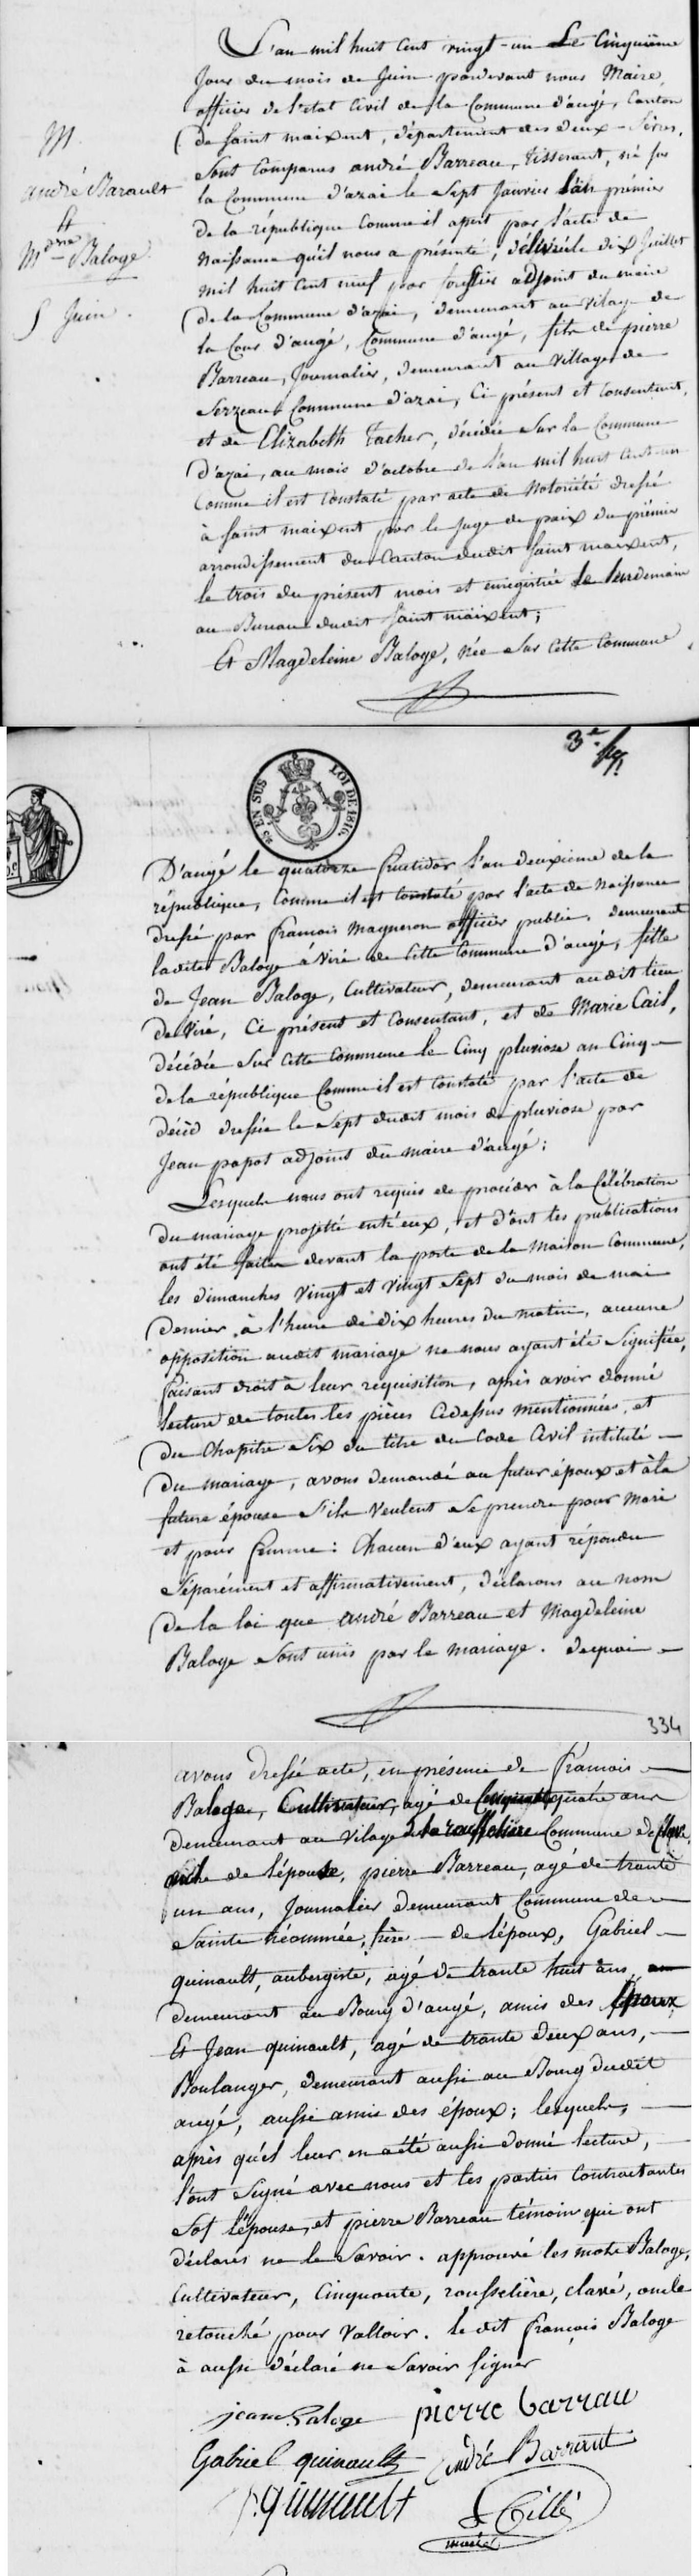 M.
André Barault
&
M.dne Baloge
5 Juin.
L'an mil huit cent vingt-un Le Cinquième
Jour du mois de Juin pardevant nous Maire,
officier de l'état Civil de la Commune d'augé, Canton
de Saint maixent, département des deux-Sèvres,
Sont Comparus andré Barreau, tisserant, né sur
la Commune d'azai le Sept Janvier l'an prémier
de la république Comme il apert par l'acte de
Naissance qu'il nous a présenté, délivré le dix Juillet
mil huit Cent neuf par adjoint du maire
de la Commune d'azai, demeurant au vilage de
la Cour d'augé, Commune d'augé, fils de pierre
Barreau, Journalier, demeurant au village de
Serzeau Commune d'azai, Ci présent et Consentant,
et de Elizabeth tacher, décédée Sur la Commune
d'azai, au mois d'octobre de l'an mil huit Cent un
Comme il est Constaté par acte de Notoriété dressé
à Saint maixent par le Juge de paix du prémier
arrondissement du Canton dudit Saint maixent,
le trois du présent mois et enregistrée le lendemain
au Bureau dudit Saint maixent;
Et Magdeleine Baloge, née Sur Cette Commune
3e
EN SUS LOI DE 1816.
D'augé le quatorze fructidor l'an deuxième de la
république, Comme il est Constaté par l'acte de Naissance
dressé par francois Magneron officier public, demeurant
ladite Baloge à Viré de Cette Commune d'augé, fille
de Jean Baloge, Cultivateur, demeurant audit lieu
de Viré, Ci présent et Consentant, et de Marie Cail,
décédée Sur Cette Commune le Cinq pluviose an Cinq
de la république Comme il est Constaté par l'acte de
décèd dressée le Sept dudit mois de pluviose par
Jean papot adjoint du maire d'augé;
Lesquels nous ont requis de procéder à la Célébration
du mariage projetté entr'eux, et d'ont les publications
ont été faites devant la porte de la Maison Commune,
les dimanches Vingt et Vingt Sept du mois de mai
dernier, à l'heure de dix heures du matin, aucune
opposition audit mariage ne nous ayant été Signifiée,
faisant droit à leur requisition, après avoir donné
lecture de toutes les pièces Cidessus mentionnées, et
du Chapitre Six du titre du Code Civil intitulé
du mariage, avons demandé au futur époux et à la
future épouse S'ils veulent Se prendre pour Mari
et pour femme: Chacun d'eux ayant répondu
Séparément et affirmativement, déclarons au nom
de la loi que andré Barreau et Magdeleine
Baloge Sont unis par le mariage. dequoi
334
avons dressé acte, en présence de francois
Baloge, Cultivateur, agé de Cinquante quatre ans
demeurant au Vilage de la rousselière Commune de Clavé,
oncle de l'épouse, pierre Barreau, agé de trante
un ans, Journalier demeurant Commune de
Sainte néommée, frère de l'époux, Gabriel
quinault, aubergiste, agé de trante huit ans,
demeurant au Bourg d'augé, amis des époux
Et Jean quinault, agé de trante deux ans,
Boulanger, demeurant aussi au Bourg dudit
augé, aussi amis des époux; lesquels,
après qu'el leur en a été aussi donné lecture,
l'ont Signé avec nous et les parties Contractantes
Sof l'épouse, et pierre Barreau témoin qui ont
déclarés ne le Savoir. approuvé les mots Baloge,
Cultivateur, Cinquante, rousselière, clavé, oncle
retouché pour Valloir. le dit françois Baloge
à aussi déclaré ne Savoir Signer
jean Baloge pierre barrau
Gabriel quinault André Barraut
J. quinault
maire